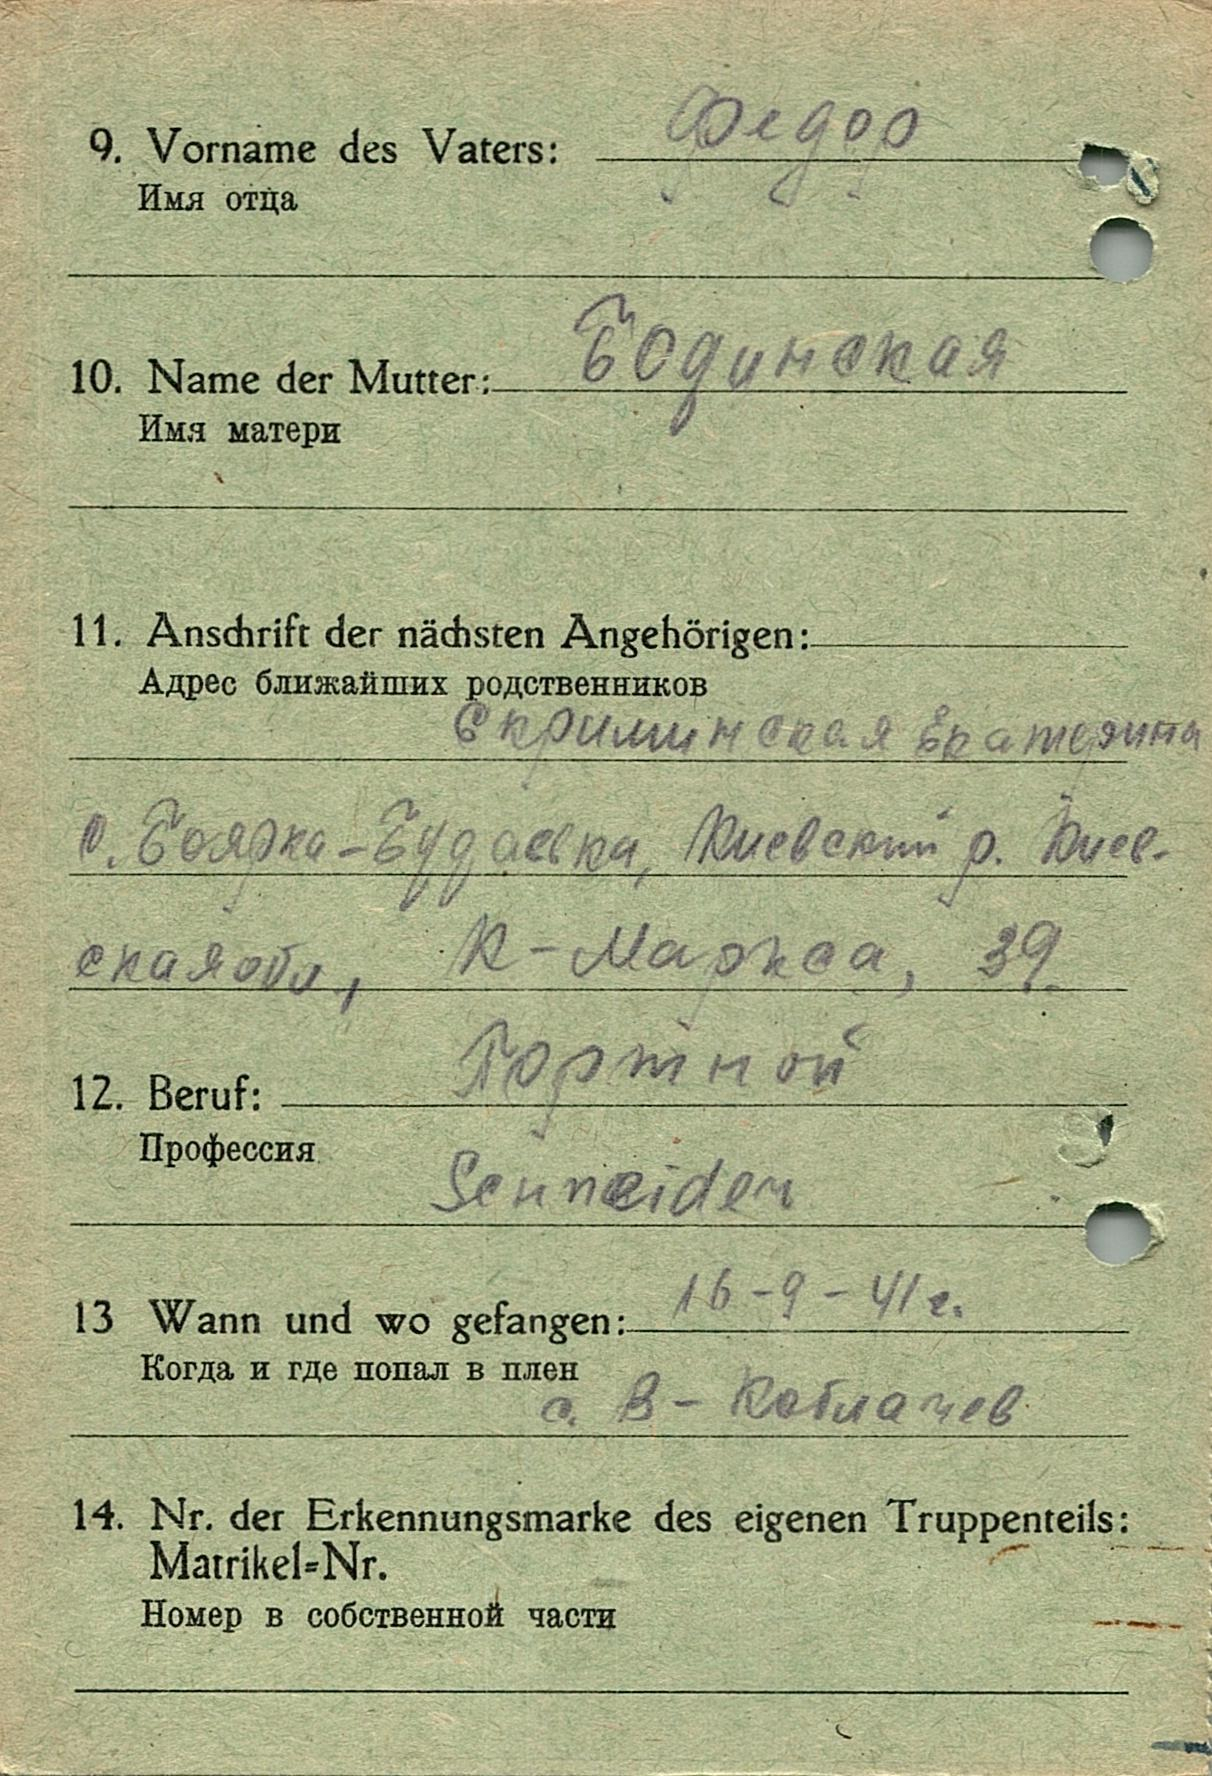 9. Vorname des Vaters: Федор
Имя отца
10. Name der Mutter: Бодинская
Имя матери
11. Anschrift der nächsten Angehörigen:
Адрес ближайших родственников
Скриминская Екатерина
с. Боярка-Будаевка, Киевский р. Киев-
ская обл., К-Маркса, 39.
12. Beruf: Портной
Профессия
Schneider
13 Wann und wo gefangen: 16-9-41 г.
Когда и где попал в плен
с. В-
14. Nr. der Erkennungsmarke des eigenen Truppenteils:
Matrikel=Nr.
Номер в собственной части